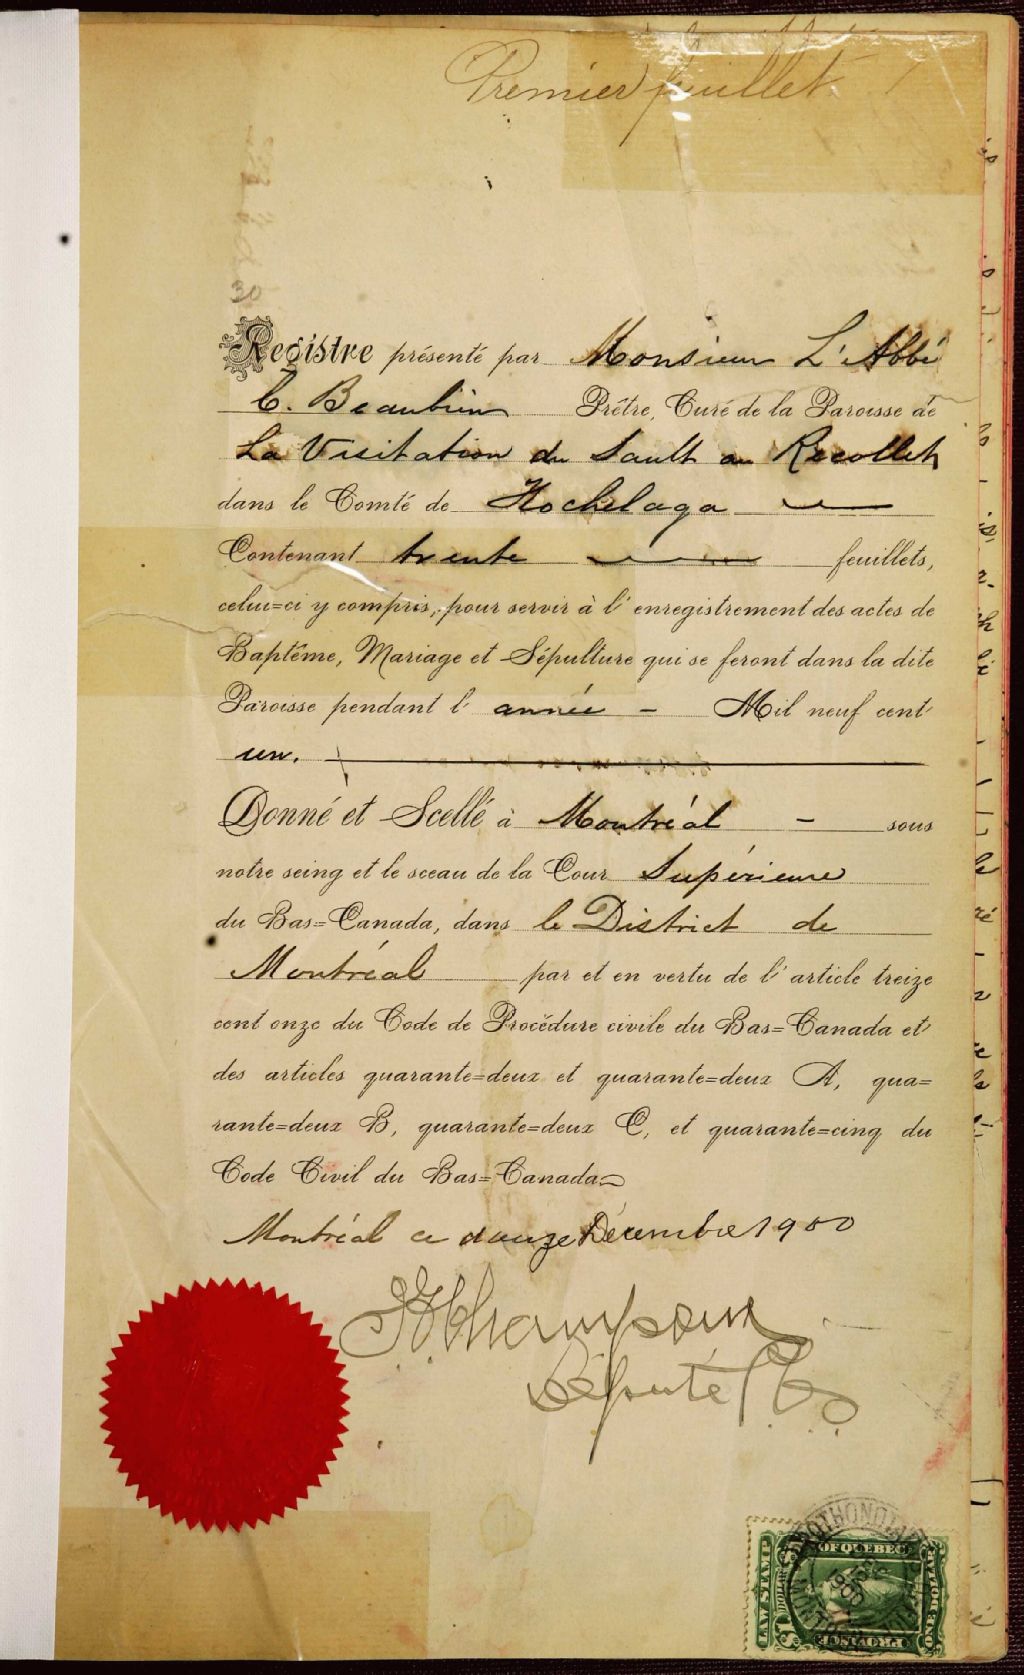 Premier feuillet
30
Registre présenté par Monsieur L'Abbé
C. Beaubien Prêtre, Curé de la Paroisse de
La Visitation du Sault au Recollet
dans le Comté de Hochelaga
Contenant trente feuillets,
celui=ci y compris, pour servir à l'enregistrement des actes de
Baptême, Mariage et Sépulture qui se feront dans la dite
Paroisse pendant l'année - Mil neuf cent
un.
Donné et Scellé à Montréal - sous
notre seing et le sceau de la Cour Supérieure
du Bas=Canada, dans le District de
Montréal par et en vertu de l'article treize
cent onze du Code de Procédure civile du Bas=Canada et
des articles quarante=deux et quarante=deux A, qua=
rante=deux B, quarante=deux C, et quarante=cinq du
Code Civil du Bas=Canada
Montréal ce douze Décembre 1900
Député
LAW STAMP
OF QUEBEC
ONE DOLLAR
1900